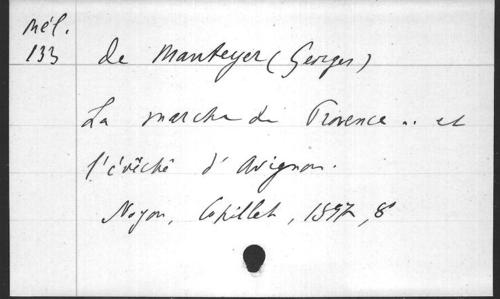 Mél.
133
de Manteyer (Georges)
La marche de Provence .. et
l'évêché d'Avignon.
Noyon, Copillet, 1897, 8°